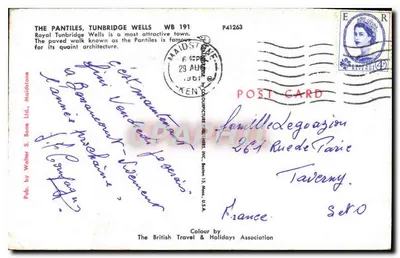 THE PANTILES, TUNBRIDGE WELLS WB 191 P41263
Royal Tunbridge Wells is a most attractive town.
The paved walk known as the Pantiles is famous
for its quaint architecture.
Pub. by Walter S. Bona Ltd., Maidstone
MAIDSTONE
29 AUG
1961
KENT
E R
POST CARD
c'est maintenant
fini Vendredi je serais
a
l'année prochaine
Famille
261 Rue de Paris
Taverny
France S & O
Colour by
The British Travel & Holidays Association